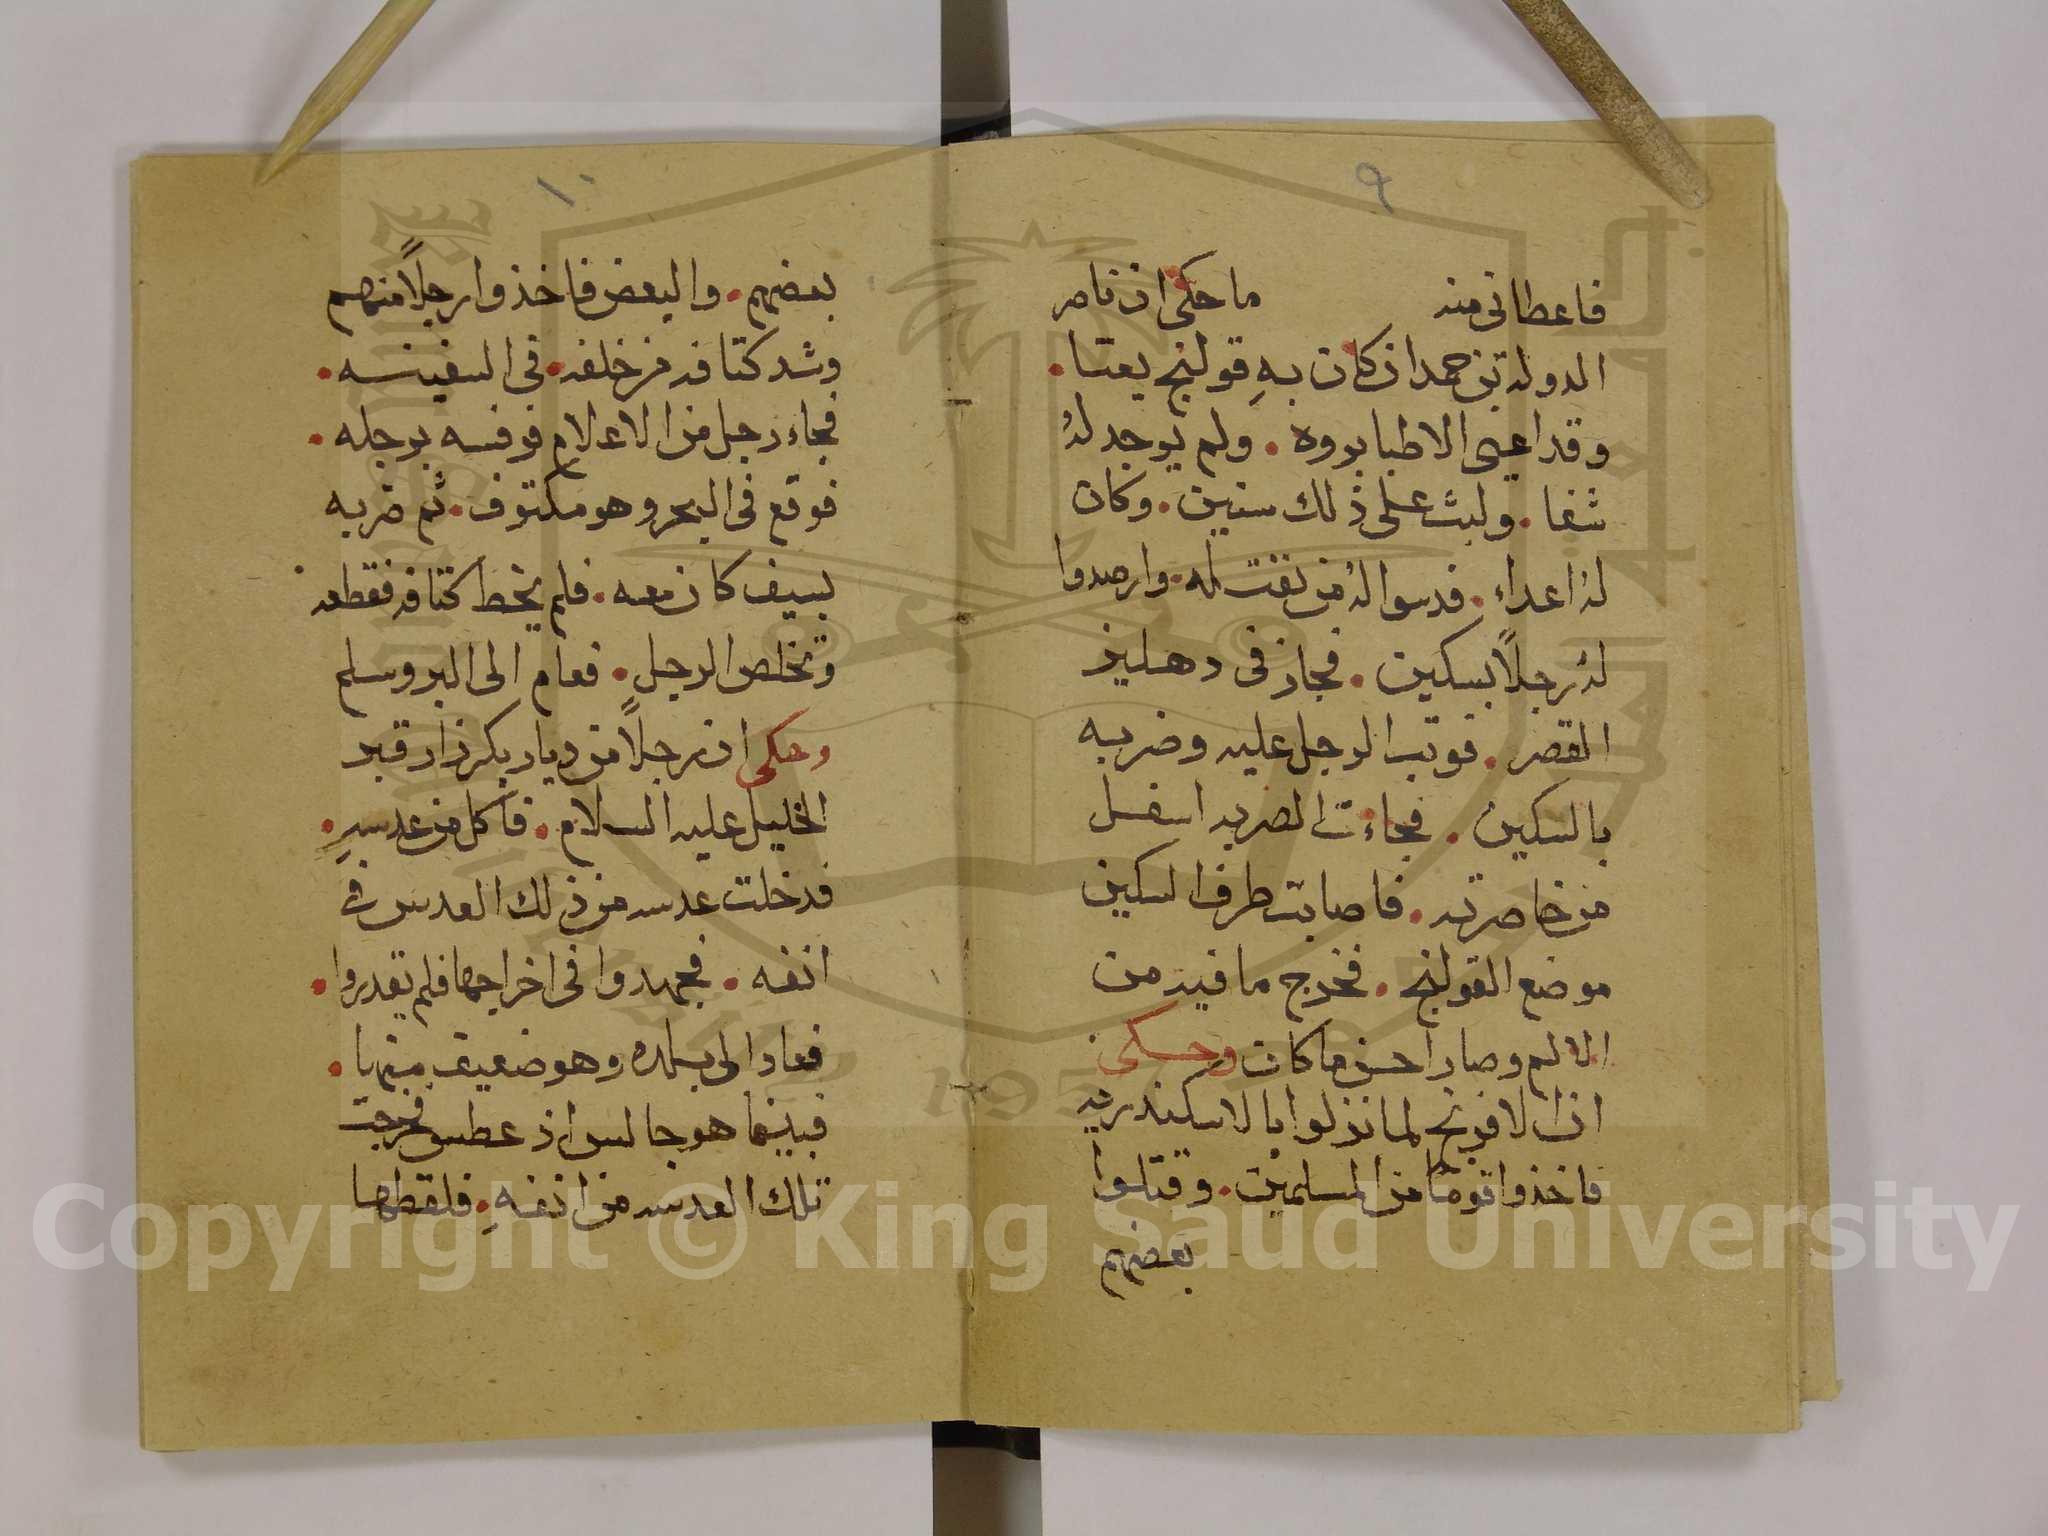 ٩
فاعطاني منه ما حكى ان ناصر
الدولة بن حمدان كان به قولنج يعتا.
وقد اعيى الاطبا بروه. ولم يوجد له
شفا. ولبث على ذلك سنين. وكان
له اعداء. فدسوا له من يفتله. وارصدوا
له رجلاً بسكين. فجاز في دهليز
القصر. فوثب الرجل عليه وضربه
بالسكين. فجاءت الضربه اسفل
من خاصرته. فاصابت طرف السكين
موضع القولنج. فخرج ما فيه من
الالم وصار احسن ما كان وحكى
ان الافرنج لما نزلوا بالاسكندريه
فاخذوا قوما من المسلمين. وقتلوا
بعضهم
١٠
بعضهم. والبعض فاخذوا رجلاً منهم
وشد كتافه من خلفه. في السفينه.
فجاء رجل من الاعلام فرفسه برجله.
فوقع في البحر وهو مكتوف. ثم ضربه
بسيف كان معه. فلم يخط كتافه فقطعه
وتخلص الرجل. فعام الى البر وسلم
وحكى ان رجلاً من ديار بكر زار قبر
الخليل عليه السلام. فاكل من عدسه.
فدخلت عدسه من ذلك العدس في
انفه. فجهدوا في اخراجها فلم يقدروا.
فعاد الى بلده وهو ضعيف منها.
فبينما هو جالس اذ عطس فخرجت
تلك العدسه من انفهِ. فلقطها
Copyright © King Saud University
1957